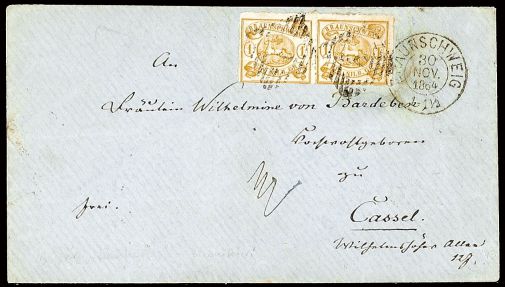 BRAUNSCHWEIG
30
NOV.
1864
An
Fräulein Wilhelmine von Bardeleben
Hochwohlgeboren
zu
Cassel.
frei.
Wilhelmshöher Allee